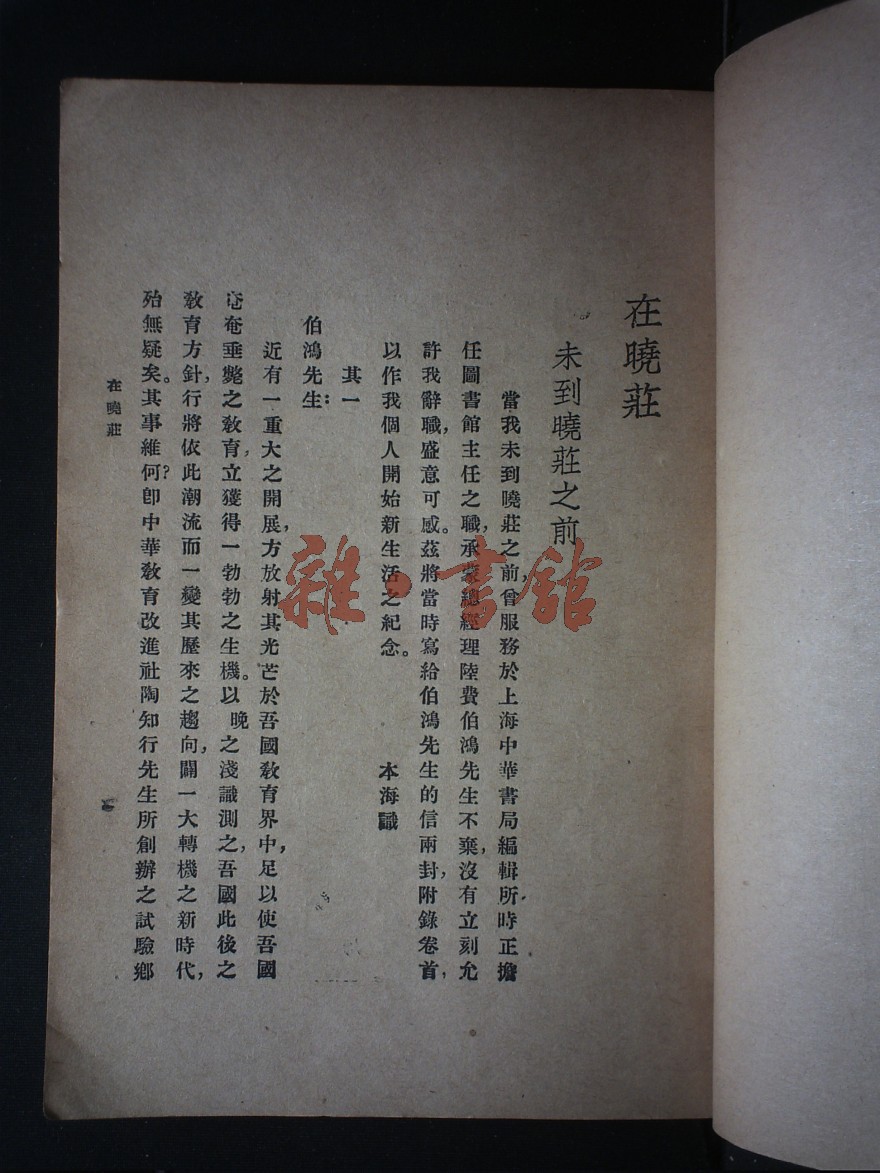 在曉莊
未到曉莊之前
當我未到曉莊之前，曾服務於上海中華書局編輯所時正擔
任圖書館主任之職，承蒙總經理陸費伯鴻先生不棄，沒有立刻允
許我辭職，盛意可感。茲將當時寫給伯鴻先生的信兩封，附錄卷首，
以作我個人開始新生活之紀念。　本海識
其一
伯鴻先生：
近有一重大之開展，方放射其光芒於吾國教育界中，足以使吾國
奄奄垂斃之教育，立獲得一勃勃之生機。以晚之淺識測之，吾國此後之
教育方針，行將依此潮流而一變其歷來之趨向，闢一大轉機之新時代，
殆無疑矣。其事維何？卽中華教育改進社陶知行先生所創辦之試驗鄉
在曉莊
雜·書館